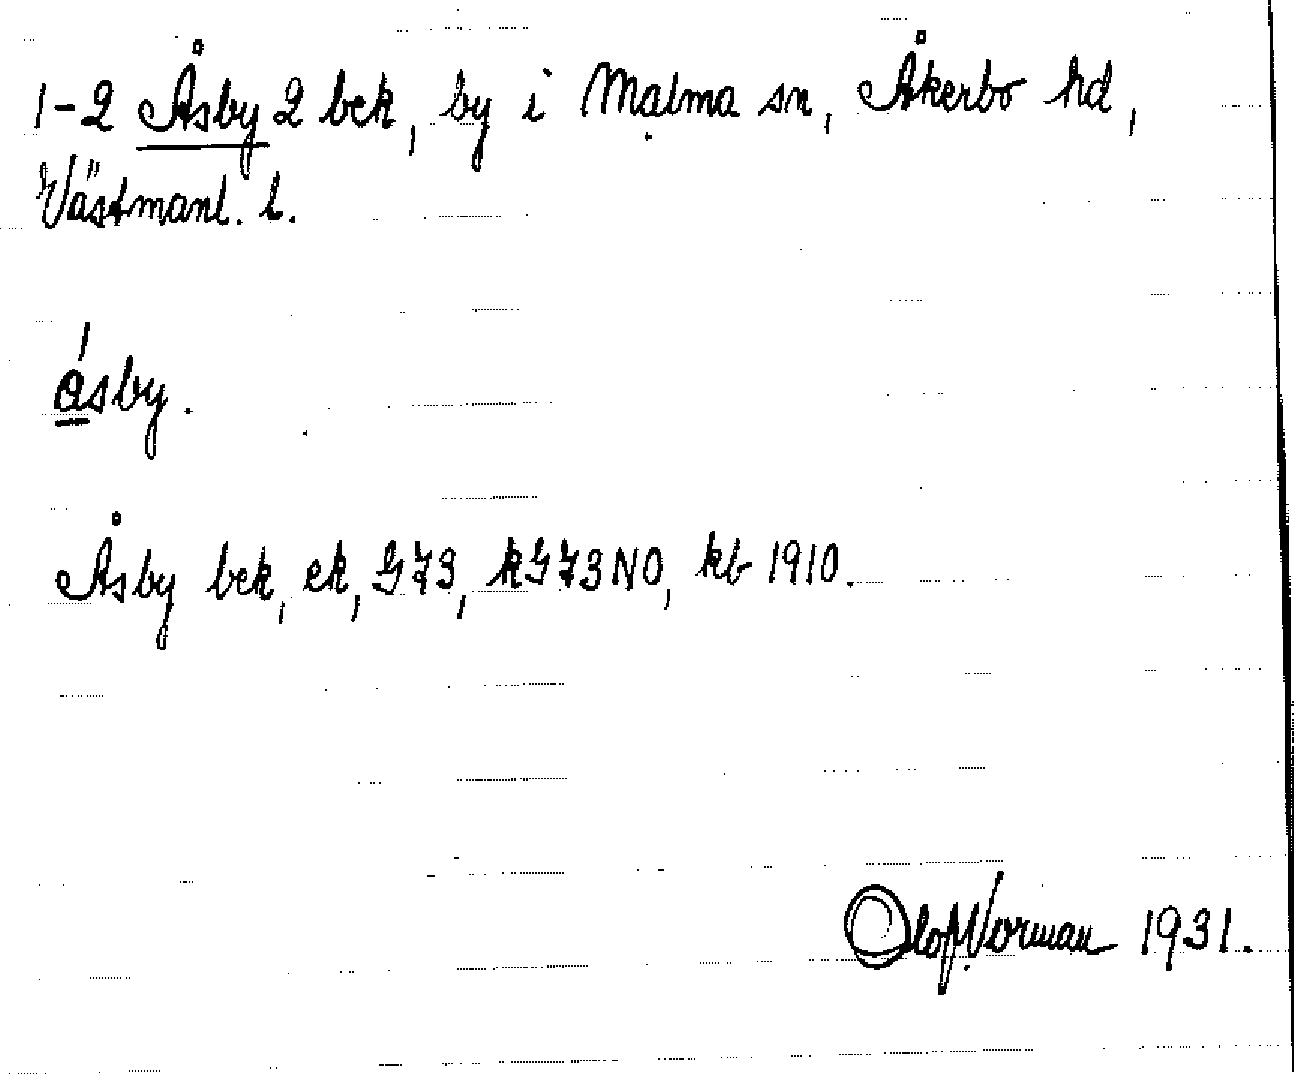 1-2 Åsby 2 bek, by i Malma sn, Åkerbo hd,
Västmanl. l.
ásby.
Åsby bek, ek, GJ3, kGJ3NO, kb 1910.
Olof Norman 1931.